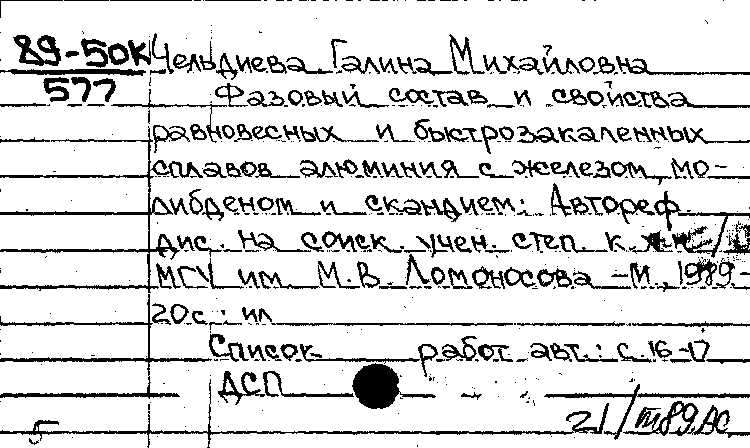 89-50К Чельдиева Галина Михайловна
577
Фазовый состав и свойства
равновесных и быстрозакаленных
сплавов алюминия с железом, мо-
либденом и скандием: Автореф.
дис. на соиск. учен. степ. к. х. н. /
МГУ им. М.В. Ломоносова -М, 1989-
20с.: ил
Список работ авт.: с. 16-17
ДСП
5
21/m89.АС